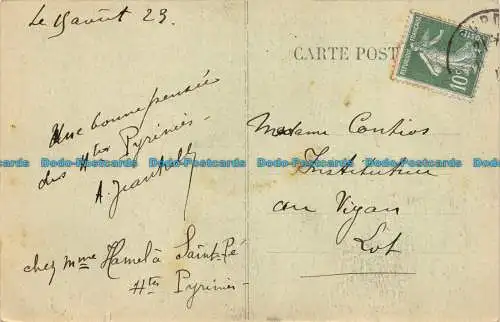 Le 15 août 23.
Une bonne pensée
des Htes Pyrénées -
A.
chez Mme Hamel à Saint-Pé
Htes Pyrénées -
CARTE POST
10c
Madame Contios
Institutrice
au Vigan
Lot
Dodo-Postcards Dodo-Postcards Dodo-Postcards Dodo-Postcards Dodo-Postcards